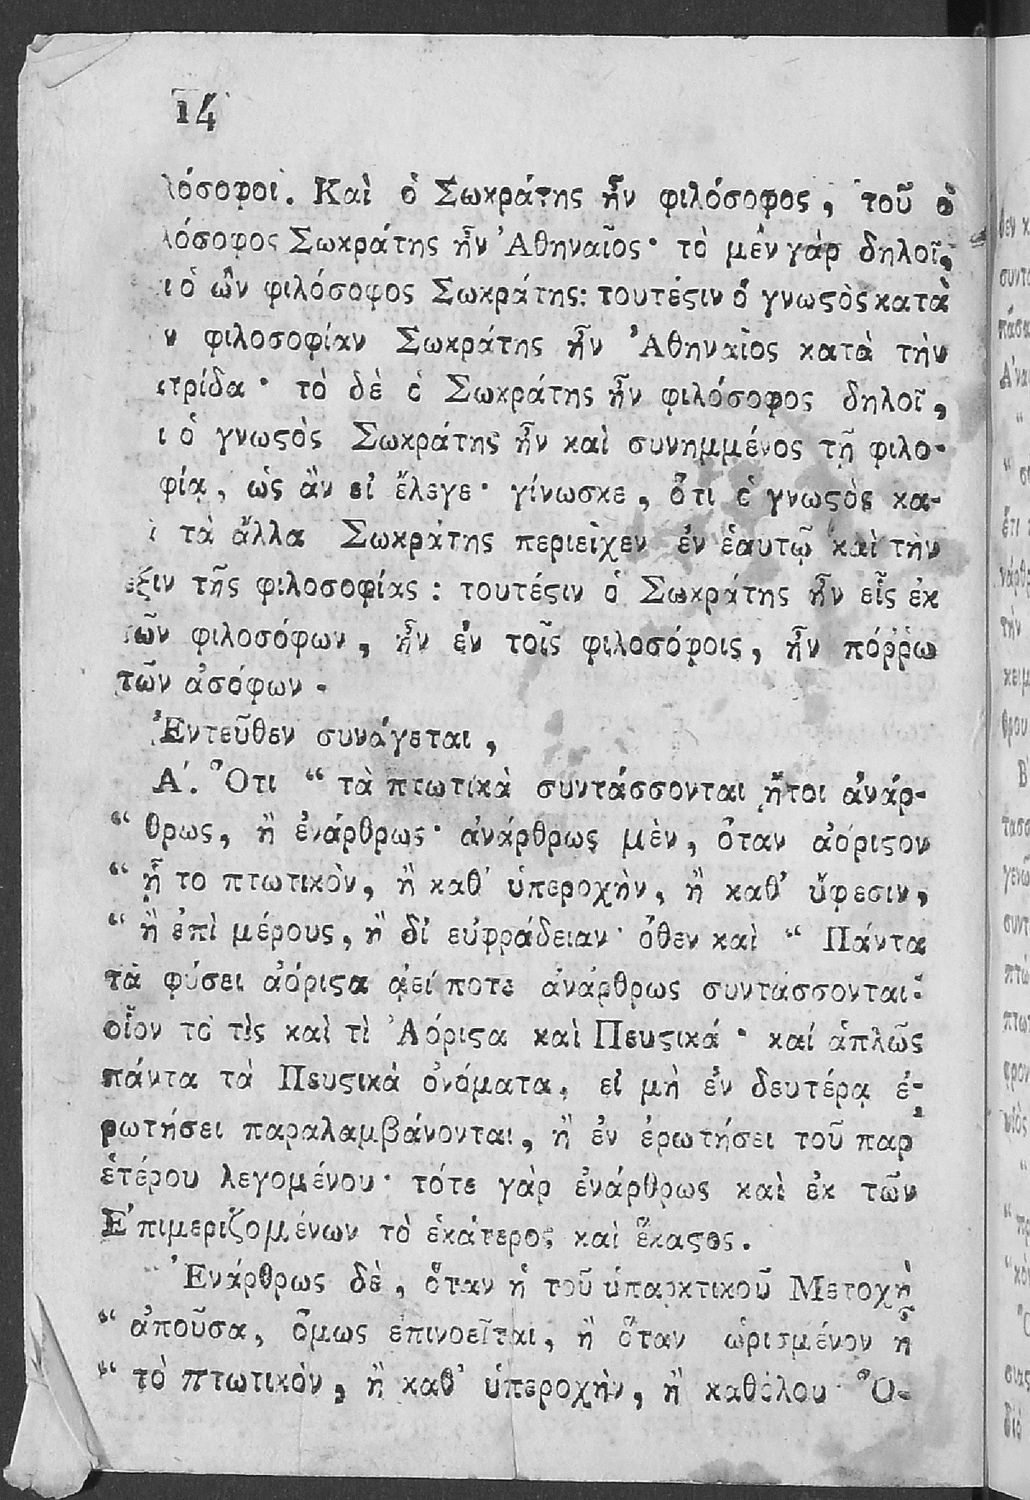 14
λόσοφοι. Καὶ ὁ Σωκράτης ἦν φιλόσοφος, τοῦ ὁ
λόσοφος Σωκράτης ἦν Ἀθηναῖος· τὸ μὲν γὰρ δηλοῖ,
ι ὁ ὢν φιλόσοφος Σωκράτης: τουτέϛιν ὁ γνωϛὸς κατὰ
ν φιλοσοφίαν Σωκράτης ἦν Ἀθηναῖος κατὰ τὴν
ατρίδα· τὸ δὲ ὁ Σωκράτης ἦν φιλόσοφος δηλοῖ,
ι ὁ γνωϛὸς Σωκράτης ἦν καὶ συνημμένος τῇ φιλο-
φίᾳ, ὡς ἂν εἰ ἔλεγε· γίνωσκε, ὅτι ὁ γνωϛὸς κα-
ὶ τὰ ἄλλα Σωκράτης περιεῖχεν ἐν ἑαυτῷ καὶ τὴν
ἕξιν τῆς φιλοσοφίας: τουτέϛιν ὁ Σωκράτης ἦν εἷς ἐκ
τῶν φιλοσόφων, ἦν ἐν τοῖς φιλοσόφοις, ἦν πόῤῥω
τῶν ἀσόφων.
Ἐντεῦθεν συνάγεται,
Α΄. Ὅτι “ τὰ πτωτικὰ συντάσσονται ἤτοι ἀνάρ-
“ θρως, ἢ ἐνάρθρως· ἀνάρθρως μὲν, ὅταν ἀόριϛον
“ ᾖ το πτωτικὸν, ἢ καθ' ὑπεροχὴν, ἢ καθ' ὕφεσιν,
“ ἢ ἐπὶ μέρους, ἢ δἰ εὐφράδειαν· ὅθεν καὶ “ Πάντα
τὰ φύσει ἀόριϛα ἀείποτε ἀνάρθρως συντάσσονται:
οἷον τὸ τὶς καὶ τὶ Ἀόριϛα καὶ Πευϛικά· καί ἁπλῶς
πάντα τὰ Πευϛικὰ ὀνόματα, εἰ μὴ ἐν δευτέρᾳ ἐ-
ρωτήσει παραλαμβάνονται, ἢ ἐν ἐρωτήσει τοῦ παρ'
ἑτέρου λεγομένου· τότε γὰρ ἐνάρθρως καὶ ἐκ τῶν
Ἐπιμεριζομένων τὸ ἑκάτερος καὶ ἕκαϛος.
Ἐνάρθρως δὲ, ὅταν ἡ τοῦ ὑπαρκτικοῦ Μετοχὴ
“ ἀποῦσα, ὅμως ἐπινοεῖται, ἢ ὅταν ὡρισμένον ᾖ
“ τὸ πτωτικὸν, ἢ καθ' ὑπεροχὴν, ἢ καθόλου· Ὅ-